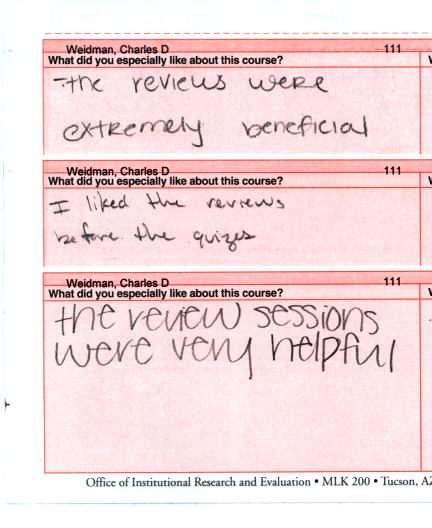 Weidman, Charles D 111
What did you especially like about this course?
the reviews were
extremely beneficial
Weidman, Charles D 111
What did you especially like about this course?
I liked the reviews
before the quizes
Weidman, Charles D 111
What did you especially like about this course?
the review sessions
were very helpful
Office of Institutional Research and Evaluation • MLK 200 • Tucson, AZ